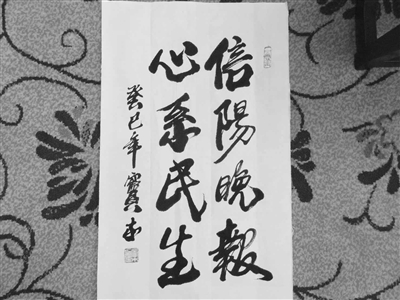 信陽晚報
心系民生
癸巳年 寶